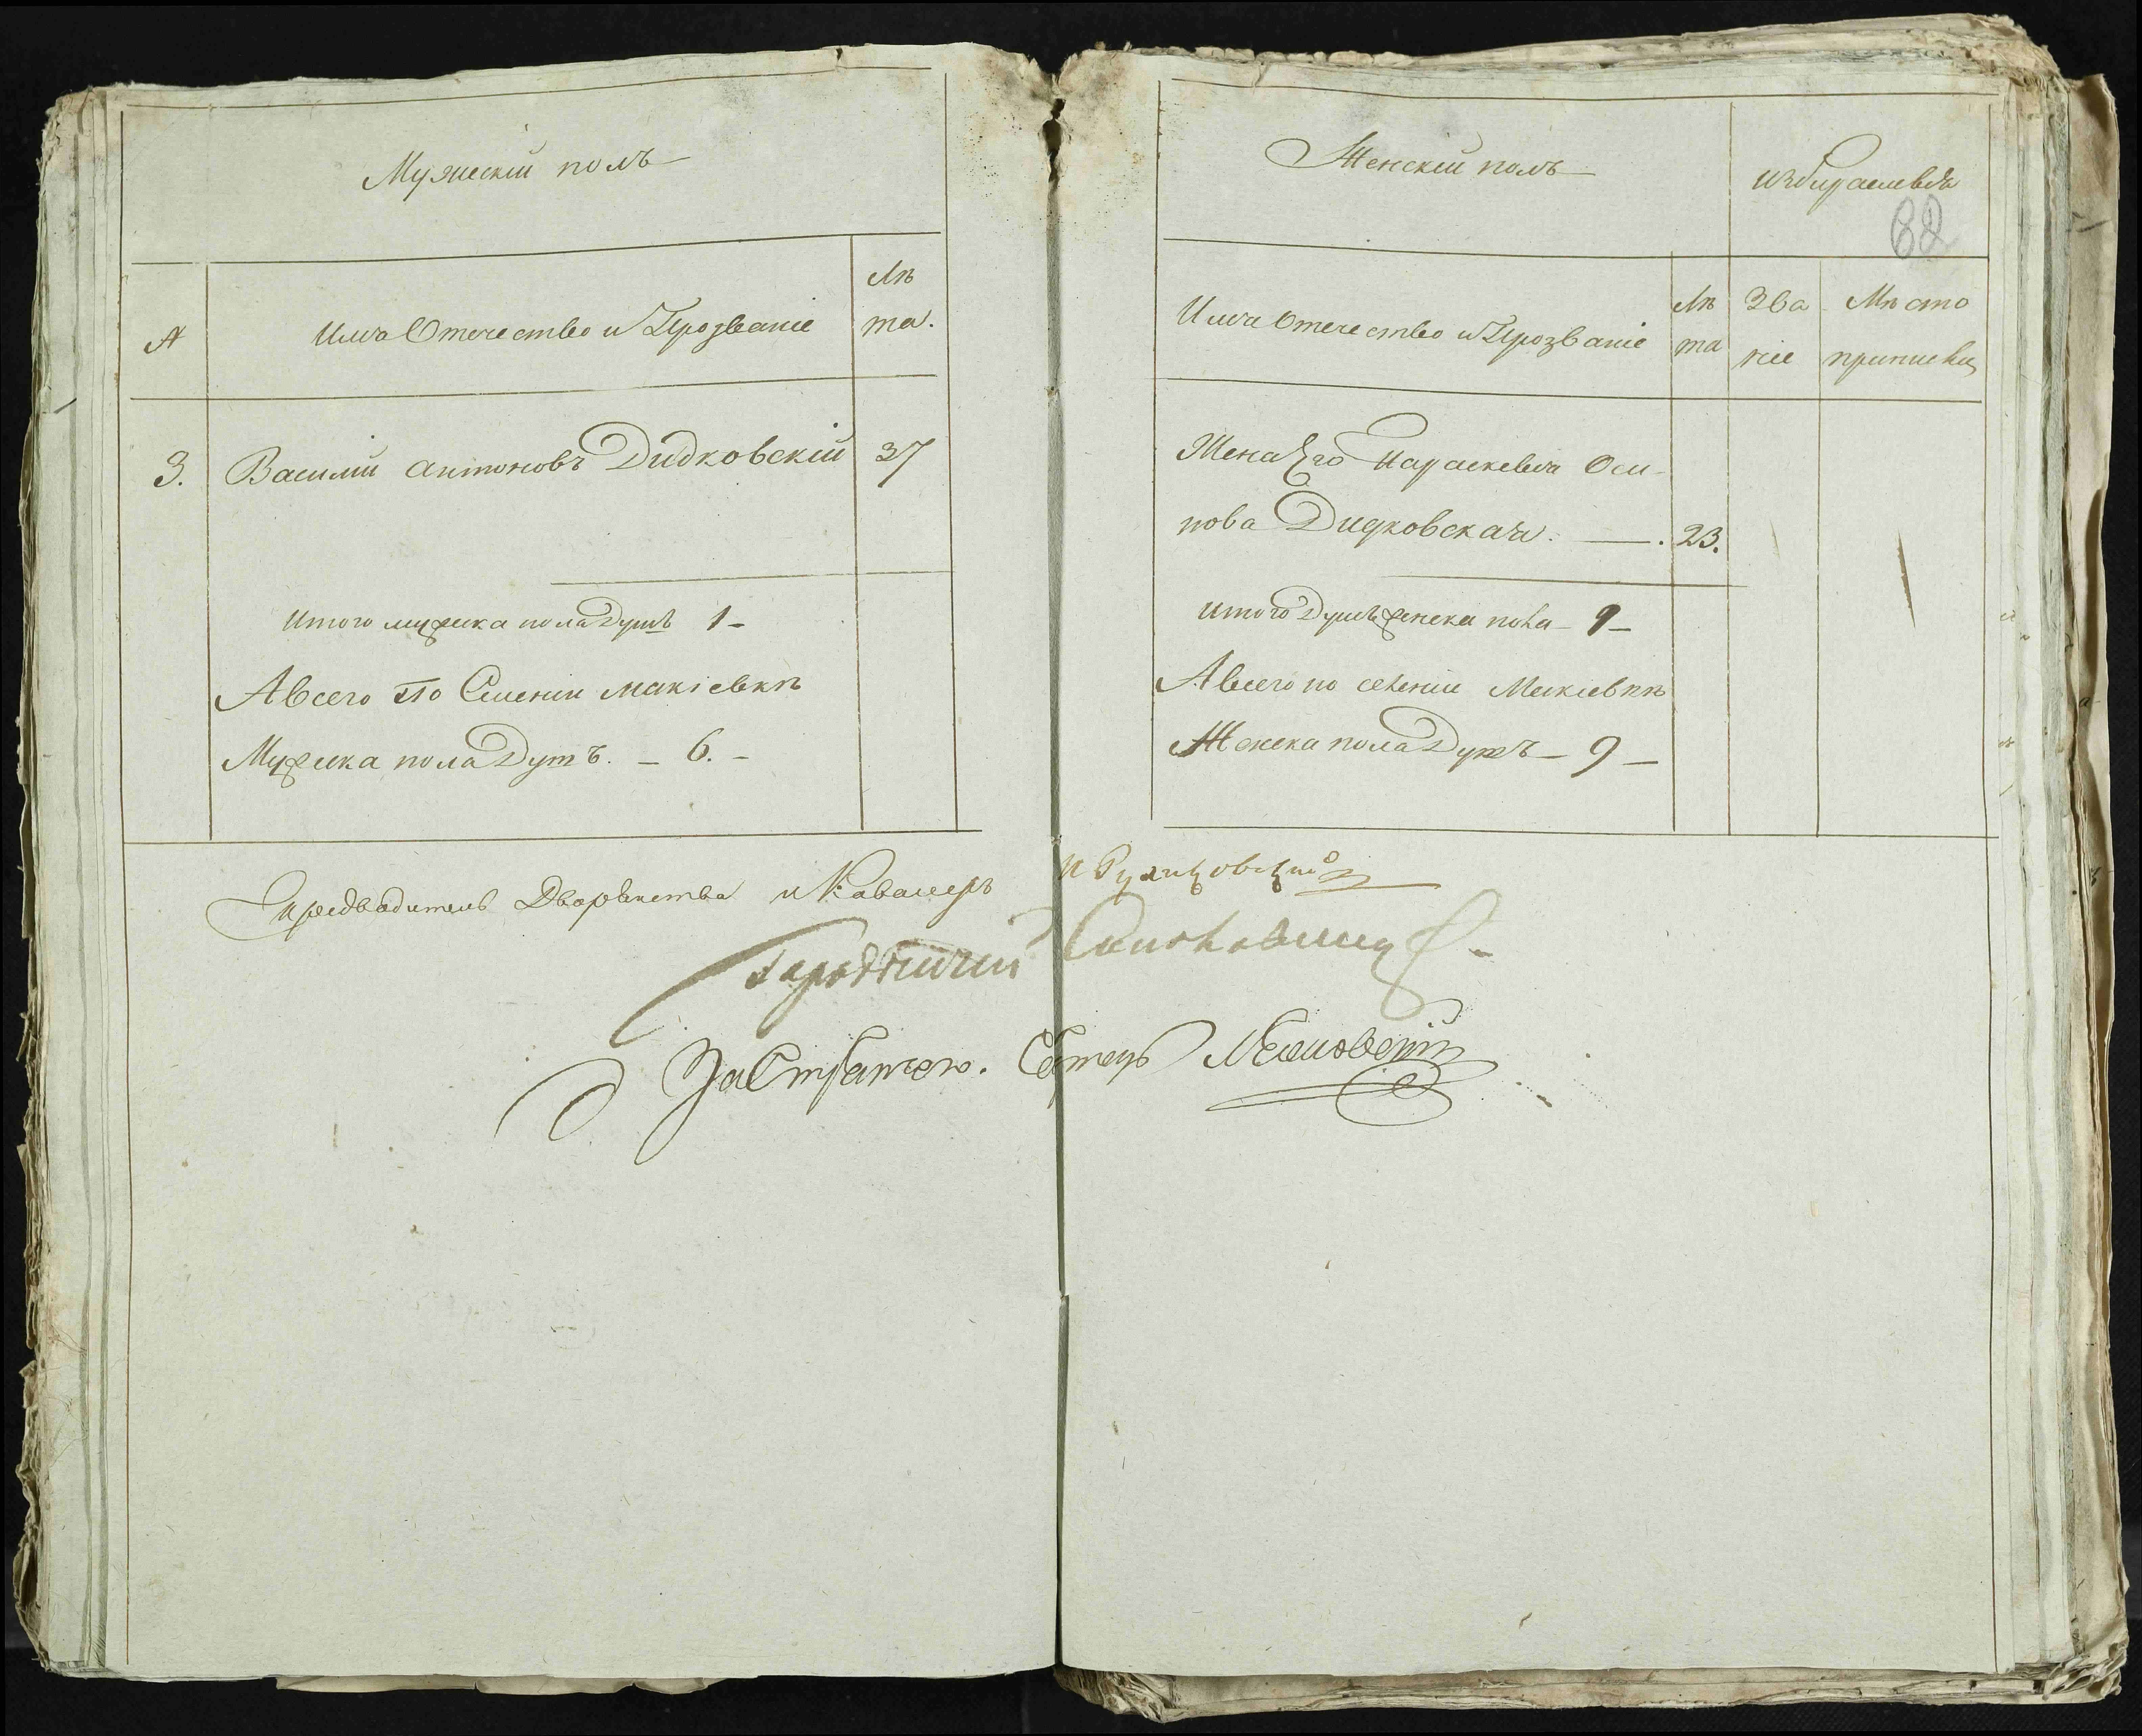 Мужескій полъ
№
Имя Отечество и Прозваніе
Лѣ
та.
3.
Василій Антоновъ Дидковскій
37
Итого мужска пола Душъ 1 -
А всего По Селенію Макіевкѣ
Мужска пола Душъ. - 6. -
Женскій полъ
избираемыя
62
Имя Отечество и Прозваніе
Лѣ
та
Зва
ніе
Мѣсто
приписки
Жена Его Параскевія Оси
пова Дидковская. — . 23.
Итого Душъ женска пола - 1 -
А всего по селенію Макіевкѣ
Женска пола Душъ - 9 -
Предводитель Дворянства и Кавалеръ
Городничій
За Стряпчего.